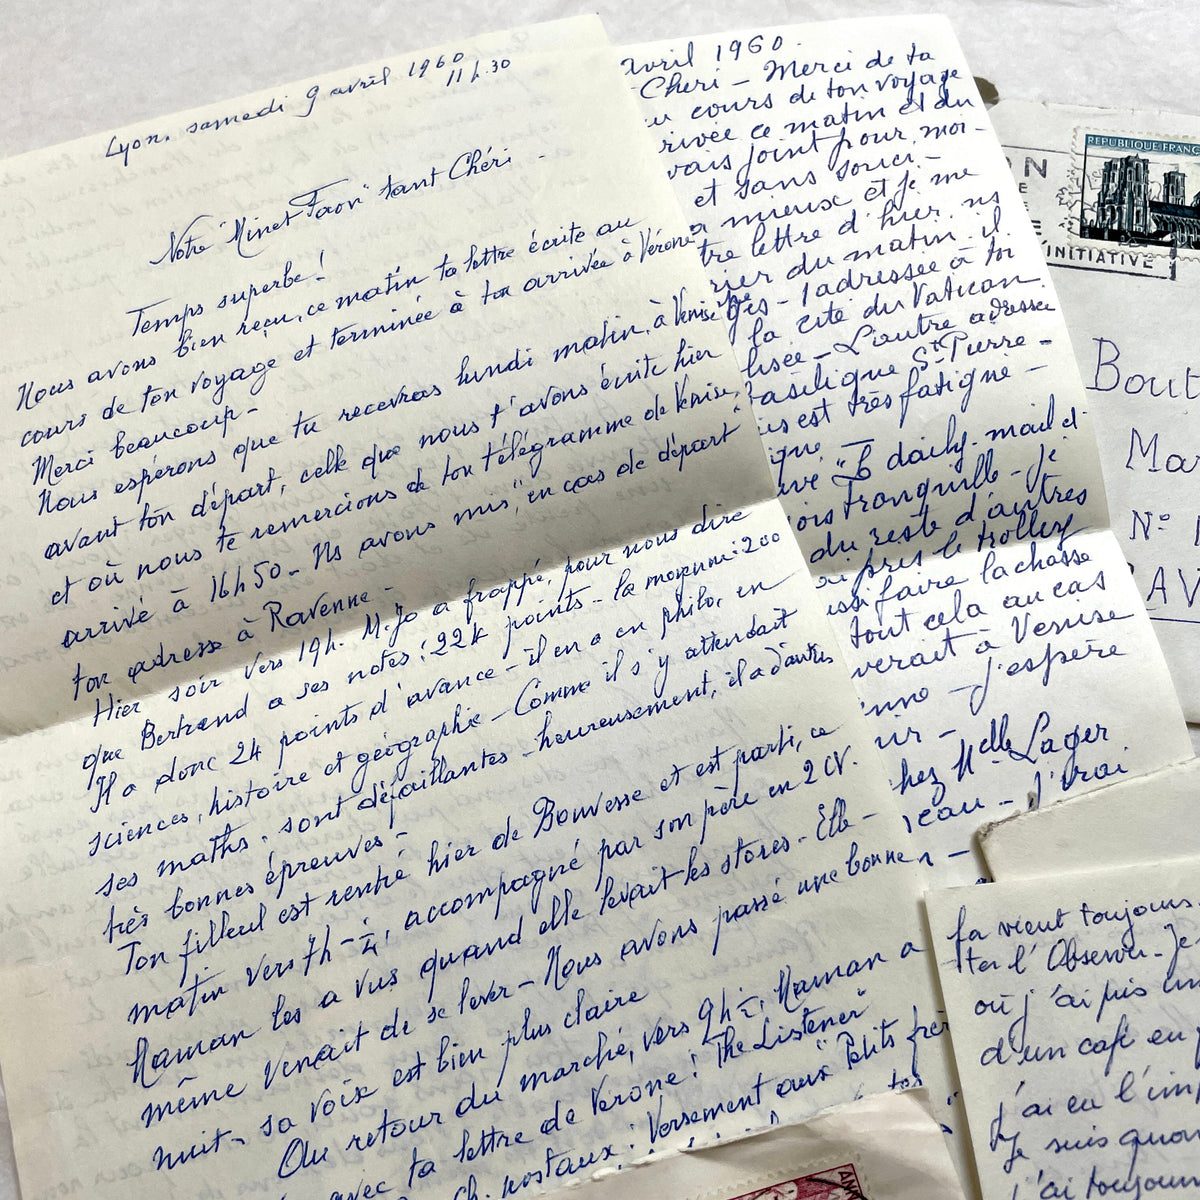 Lyon, samedi 9 avril 1960
11 h.30
Notre "Minet Faon" tant Chéri -
Temps superbe !
Nous avons bien reçu, ce matin ta lettre écrite au
cours de ton voyage et terminée à ton arrivée à Vérone
Merci beaucoup -
Nous espérons que tu recevras lundi matin, à Venise
avant ton départ, celle que nous t'avons écrite hier
et où nous te remercions de ton télégramme de Venise,
arrivé à 16h50 - Ns avons mis "en cas de départ"
ton adresse à Ravenne -
Hier soir vers 19h. M. Jo a frappé, pour nous dire
que Bertrand a ses notes : 224 points - la moyenne : 200
Il a donc 24 points d'avance - il en a en philo, en
sciences, histoire et géographie - Comme il s'y attendait
ses maths. sont défaillantes - heureusement, il a d'autres
très bonnes épreuves -
Ton filleul est rentré hier de Bouvesse et est parti, ce
matin vers 7h - 1/4, accompagné par son père en 2 CV.
Maman les a vus quand elle levait les stores - Elle -
même venait de se lever - Nous avons passé une bonne
nuit - sa voix est bien plus claire
Au retour du marché, vers 9h 1/2, Maman a
avec ta lettre de Vérone : "The Listener"
Ch. postaux : Versement aux "Petits frè
avril 1960.
Chéri - Merci de ta
cours de ton voyage
rivée ce matin et du
vais joint pour moi -
et sans souci -
mieux et je me
tre lettre d'hier, ns
rier du matin. il
ges - 1 adressée à toi
la cité du Vatican
lisée - L'autre adressée
asilique St Pierre -
is est très fatigué -
ique -
ive "Le daily-mail et
ois tranquille - Je
du reste d'autres
ai pris le trolley
ssi faire la chasse
tout cela au cas
verait à Venise
enne - J'espère
ir -
hez Melle Lager
eau - J'irai
REPUBLIQUE FRANÇ
ON
E
E
INITIATIVE
Bout
Mar
N° 1
RAV
la vient toujours.
ter l'Observer - Je
où j'ai pris un
d'un café en f
j'ai eu l'imp
Je suis quan
j'ai toujours